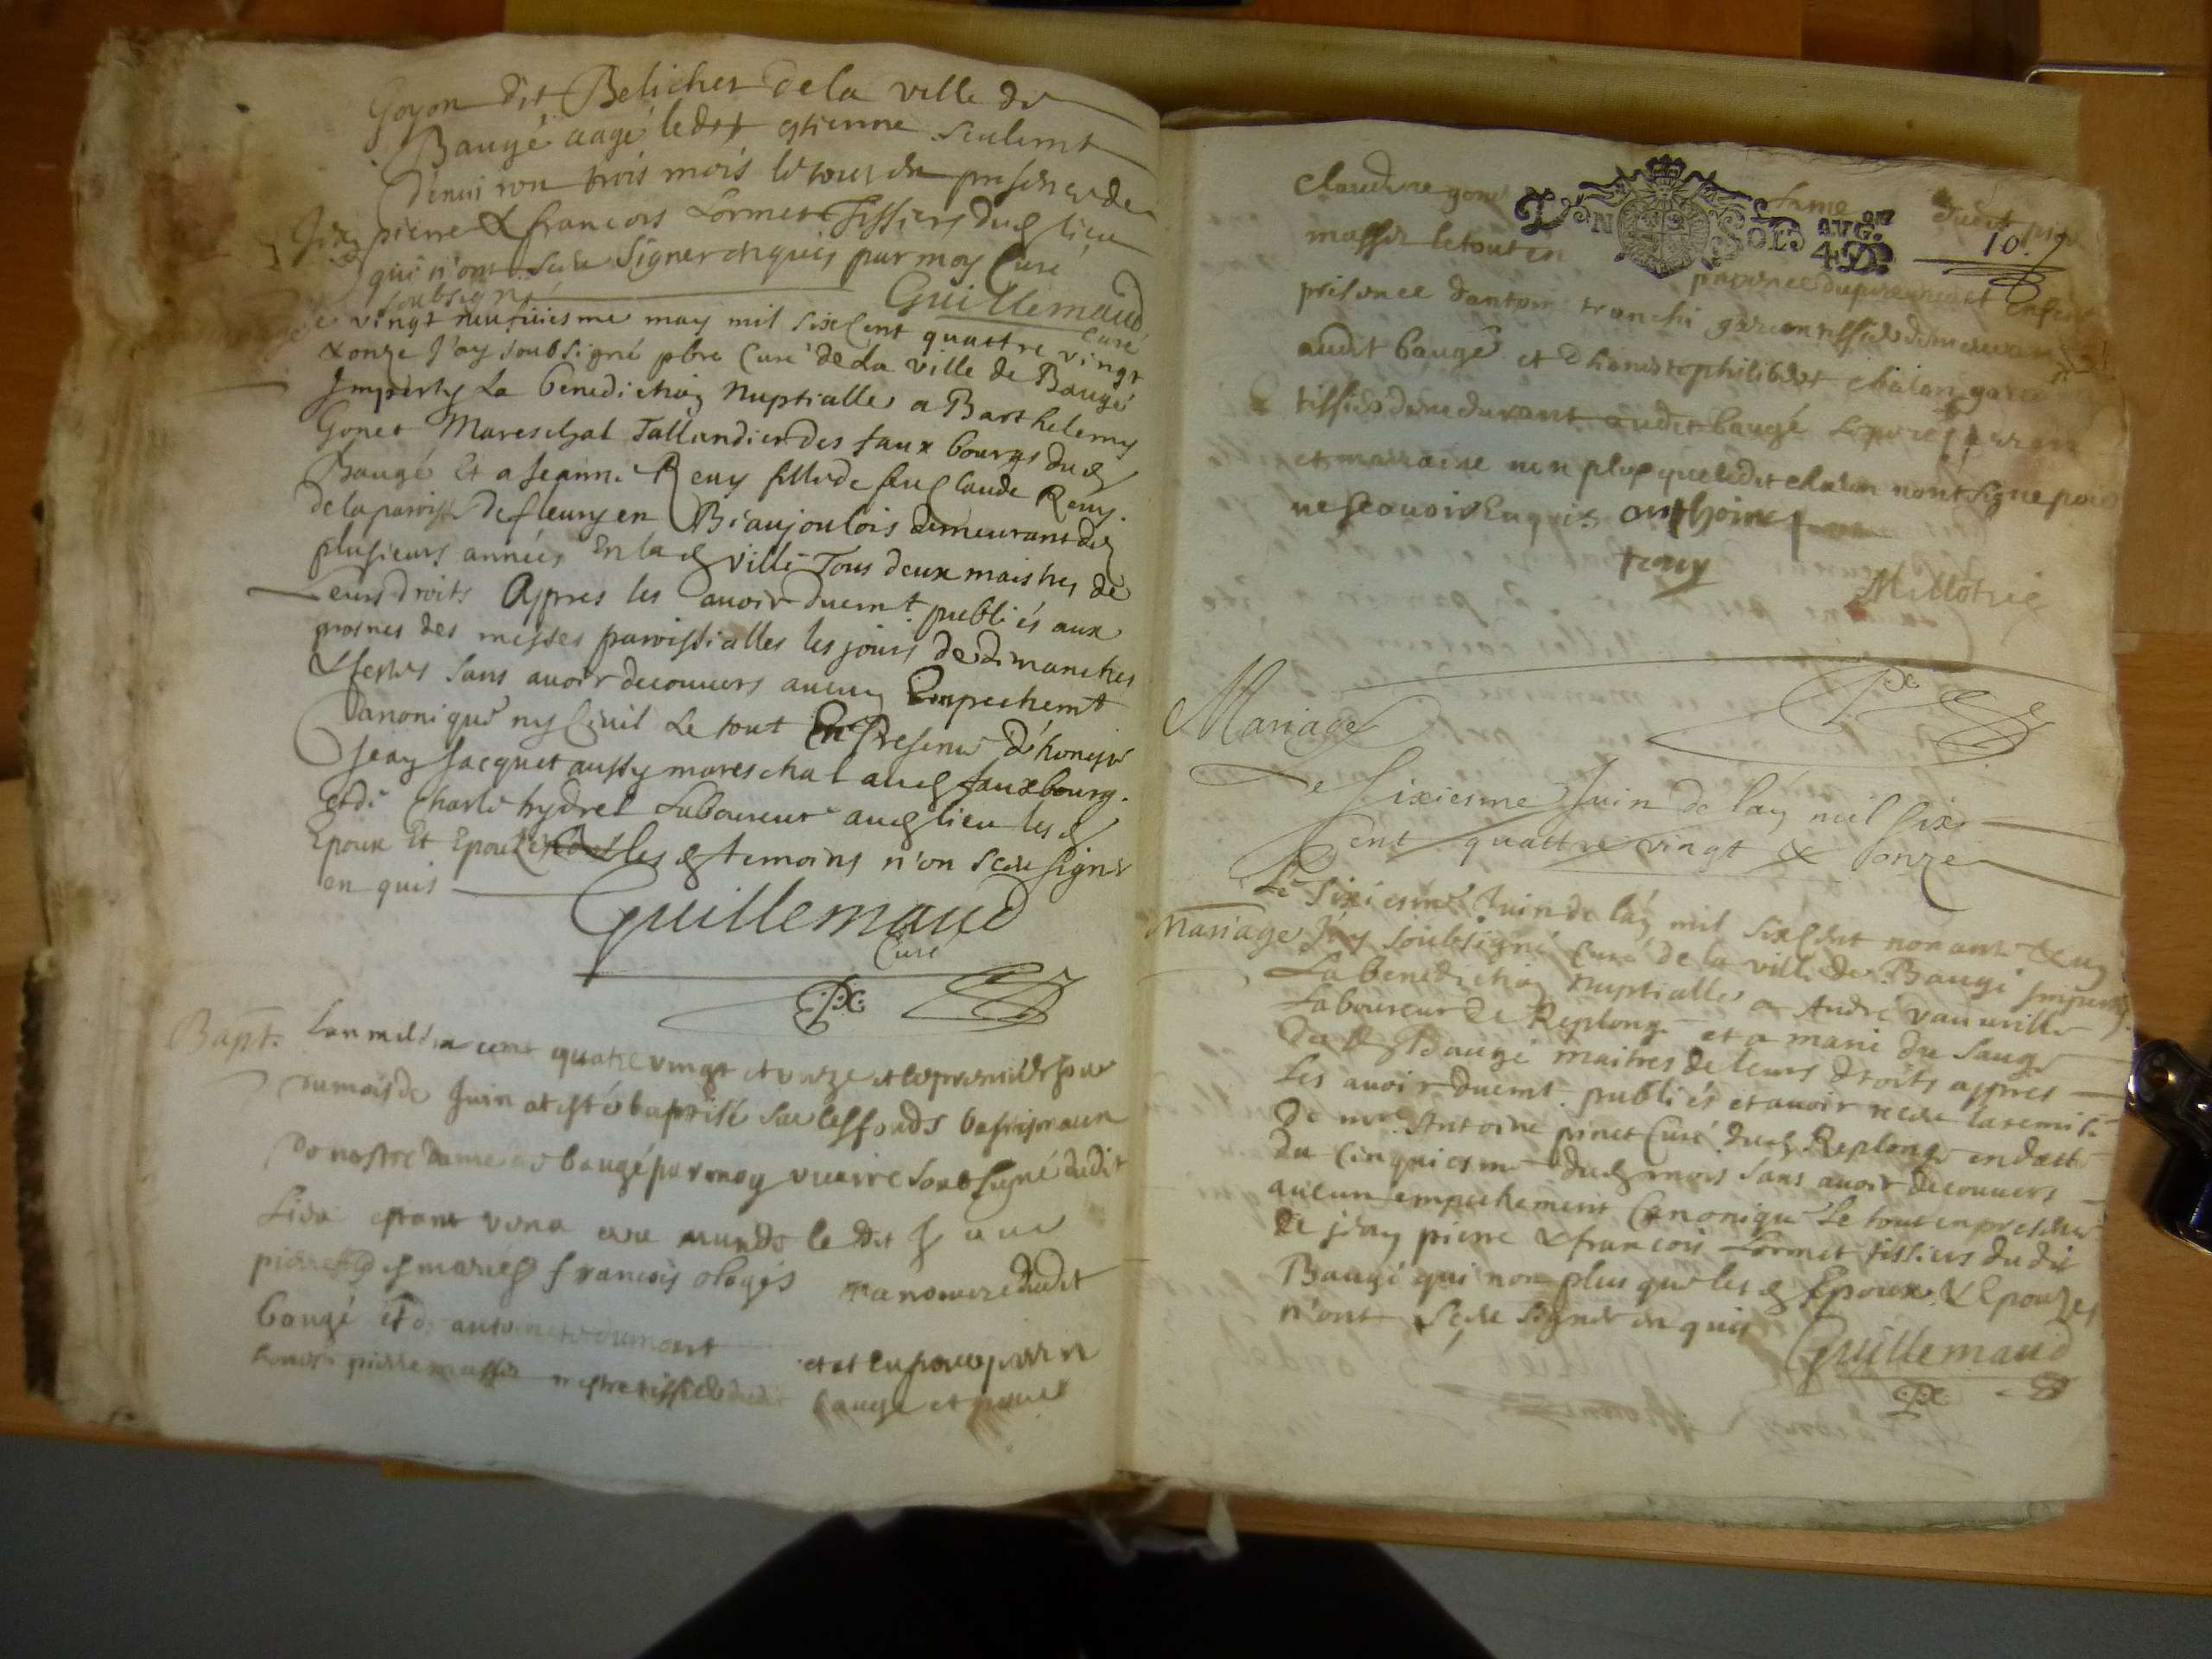 Goyon dit Belicher de la ville de
Baugé aagé ledit estienne seulemt
d'enuiron trois mois le tout en presence de
Jean pierre & francois Lormet Tissiers dud lieu
qui n'ont sceu signer enquis par moy Curé
soubsigné
Guillemaud
Curé
vingt neufuiesme may mil six Cent quattre vingt
& onze J'ay soubsigné pbre Curé de La ville de Baugé
Imparty La benediction Nuptialle a Barthelemy
Gonet Mareschal Tallandier des faux bourgs dud
Baugé Et a Jeanne Reuy fille de feu Claude Reuy
de la paroisse de fleury en Beaujoulois demeurant des
plusieurs années En lad ville Tous deux maistres de
Leurs droits Appres les auoir duemt publiés aux
prosnes des messes paroissialles les jours de dimanches
& festes sans auoir decouuers aucun Empechemt
Canonique ny Ciuil Le tout En Presence d'honeste
Jean Jacquet aussy mareschal aud faux bourg
et de Charle hydret Laboureur aud lieu les d
Epoux Et Epouze les d temoins n'on sceu signer
en quis
Guillemaud
Curé
Bapt.
Lan mil six cent quatre vingt et onze et le premier jour
du mois de Juin at esté baptisé sur les fonds baptismaux
de nostre dame de baugé par moy vicaire soubsigné dudit
Lieu estant venu au monde le dit jour
pierre fils de francois manouure dudit
baugé et d
et at eu pour parrin
honeste pierre massé mestre tissier dudit baugé et pour
Claudine gone fame dudit pierre
DEN SOLS AUG.ON 4D
10.
massé le tout en
presence dantoine tranchi garcon tissier demeurant
audit baugé et dhoneste philibert chalan garcon
tissier demeurant audit baugé
et marraine non plus que ledit chalan nont signe pour
ne scauoir Enquis anthoine
Mariage
Le sixiesme Juin de lan mil six
Cent quattre vingt & onze
Le sixiesme Juin de lan mil six Cent nonante & un
Mariage
J'ay soubsigné Curé de la ville de Baugé Imparty
La benediction nuptialle a André vauurille
Laboureur de Replonge et a marie du saug
dud Baugé maitres de leurs droits appres
Les auoir duemt publiés et auoir receu la remise
de mre Antoine pinet Curé dud Replonge en datte
du Cinquiesme dud mois sans auoir decouuers
aucun empechement Canonique Le tout en presence
de jean pierre & francois Lormet tissiers dudit
Baugé qui non plus que les d Epoux & Epouzes
n'ont sceu signer en quis
Guillemaud